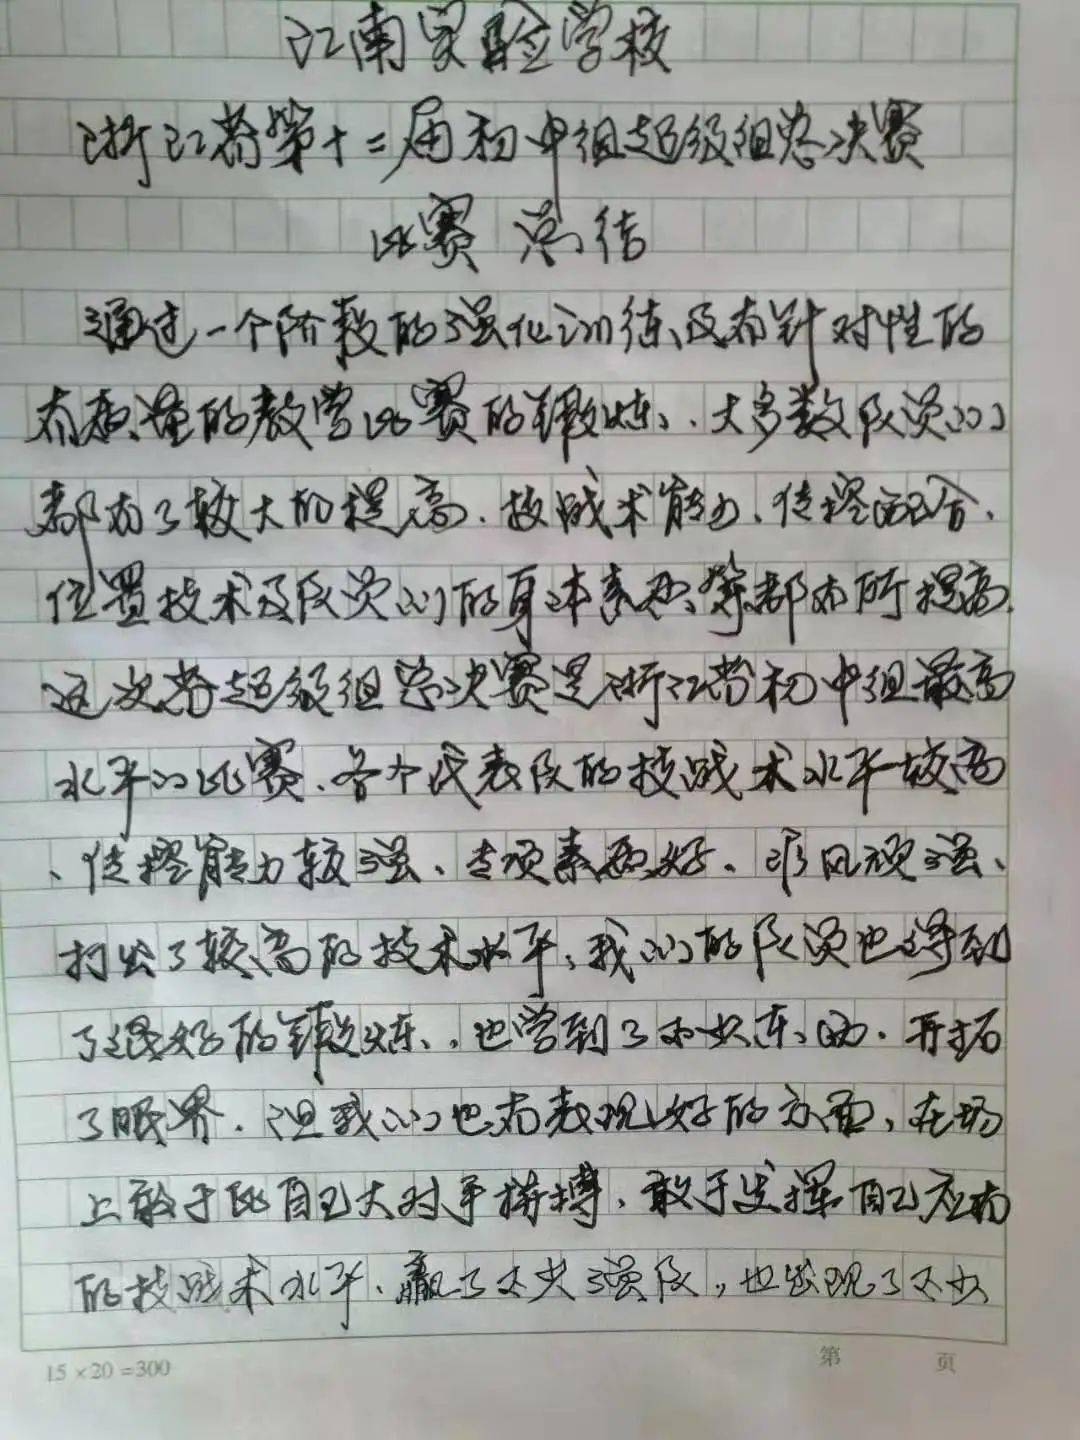 江南实验学校
浙江省第十二届初中组超级组总决赛
比赛总结
通过一个阶段的强化训练、及有针对性的
有质量的教学比赛的锻炼、大多数队员们
都有了较大的提高。技战术能力、传控配合、
位置技术及队员们的身体素质、等都有所提高.
这次省超级组总决赛是浙江省初中组最高
水平的比赛、各个代表队的技战术水平较高
、传控能力较强、专项素质好、球风顽强、
打出了较高的技术水平、我们的队员也得到
了很好的锻炼、也学到了不少东西.开拓
了眼界.但我们也有表现好的方面、在场
上敢于比自己大对手拼搏、敢于发挥自己应有
的技战术水平、赢了不少强队,也发现了不少
15×20=300
第 页